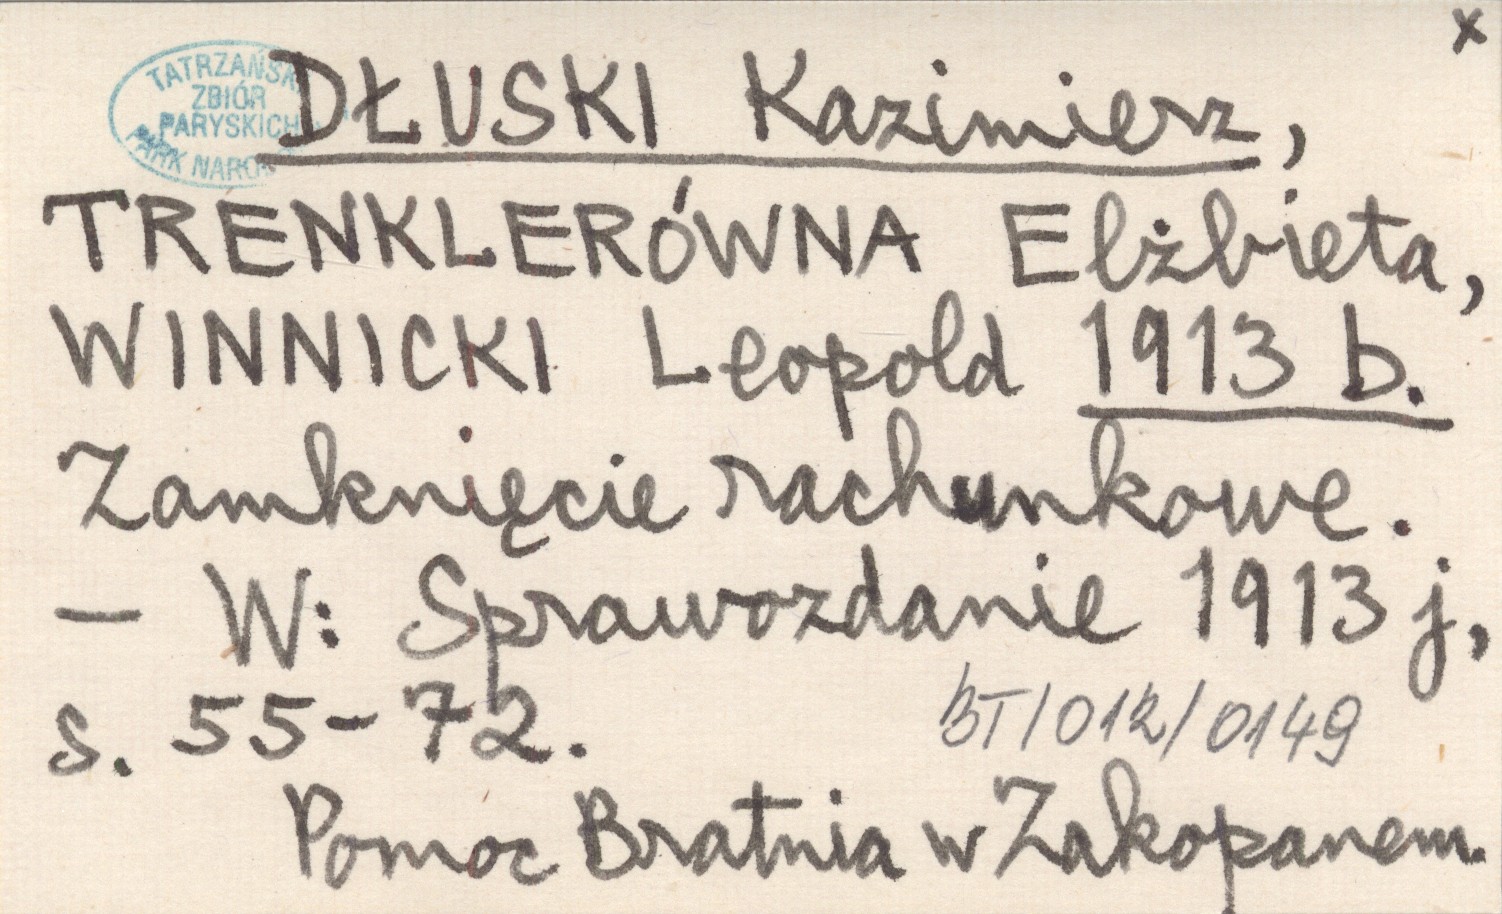 x
TATRZAŃSKI
ZBIÓR
PARYSKICH
PARK NARO
DŁUSKI Kazimierz,
TRENKLERÓWNA Elżbieta,
WINNICKI Leopold 1913 b.
Zamknięcie rachunkowe.
— W: Sprawozdanie 1913 j,
s. 55-72.
BT/012/0149
Pomoc Bratnia w Zakopanem.